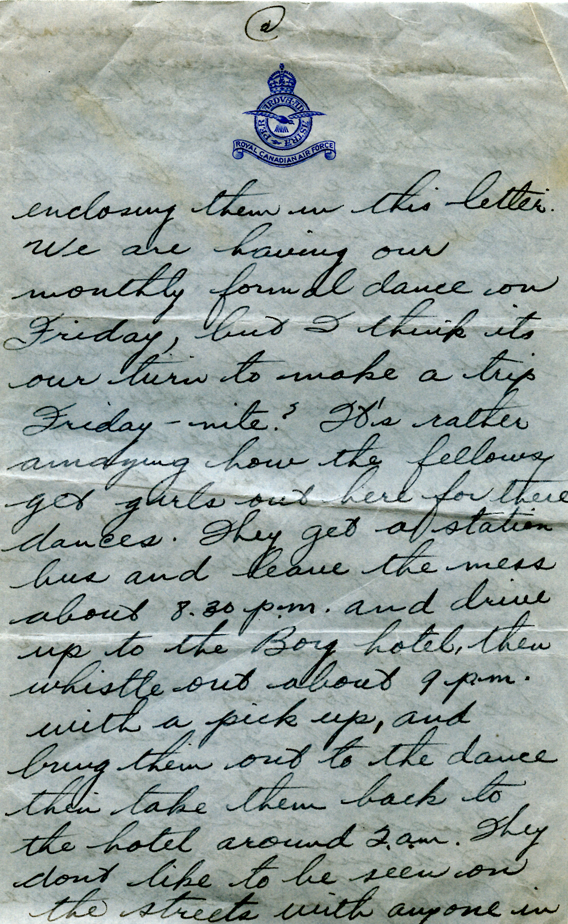 2
PER ARDVA AD ASTRA
ROYAL CANADIAN AIR FORCE
enclosing them in this letter.
We are having our
monthly formal dance on
Friday, but I think its
our turn to make a trip
Friday-nite.? It's rather
amazing how the fellows
get girls out here for these
dances. They get a station
bus and leave the mess
about 8.30 p.m. and drive
up to the Borg hotel, then
whistle out about 9 p.m.
with a pick up, and
bring them out to the dance
then take them back to
the hotel around 2.am. They
dont like to be seen on
the streets with anyone in